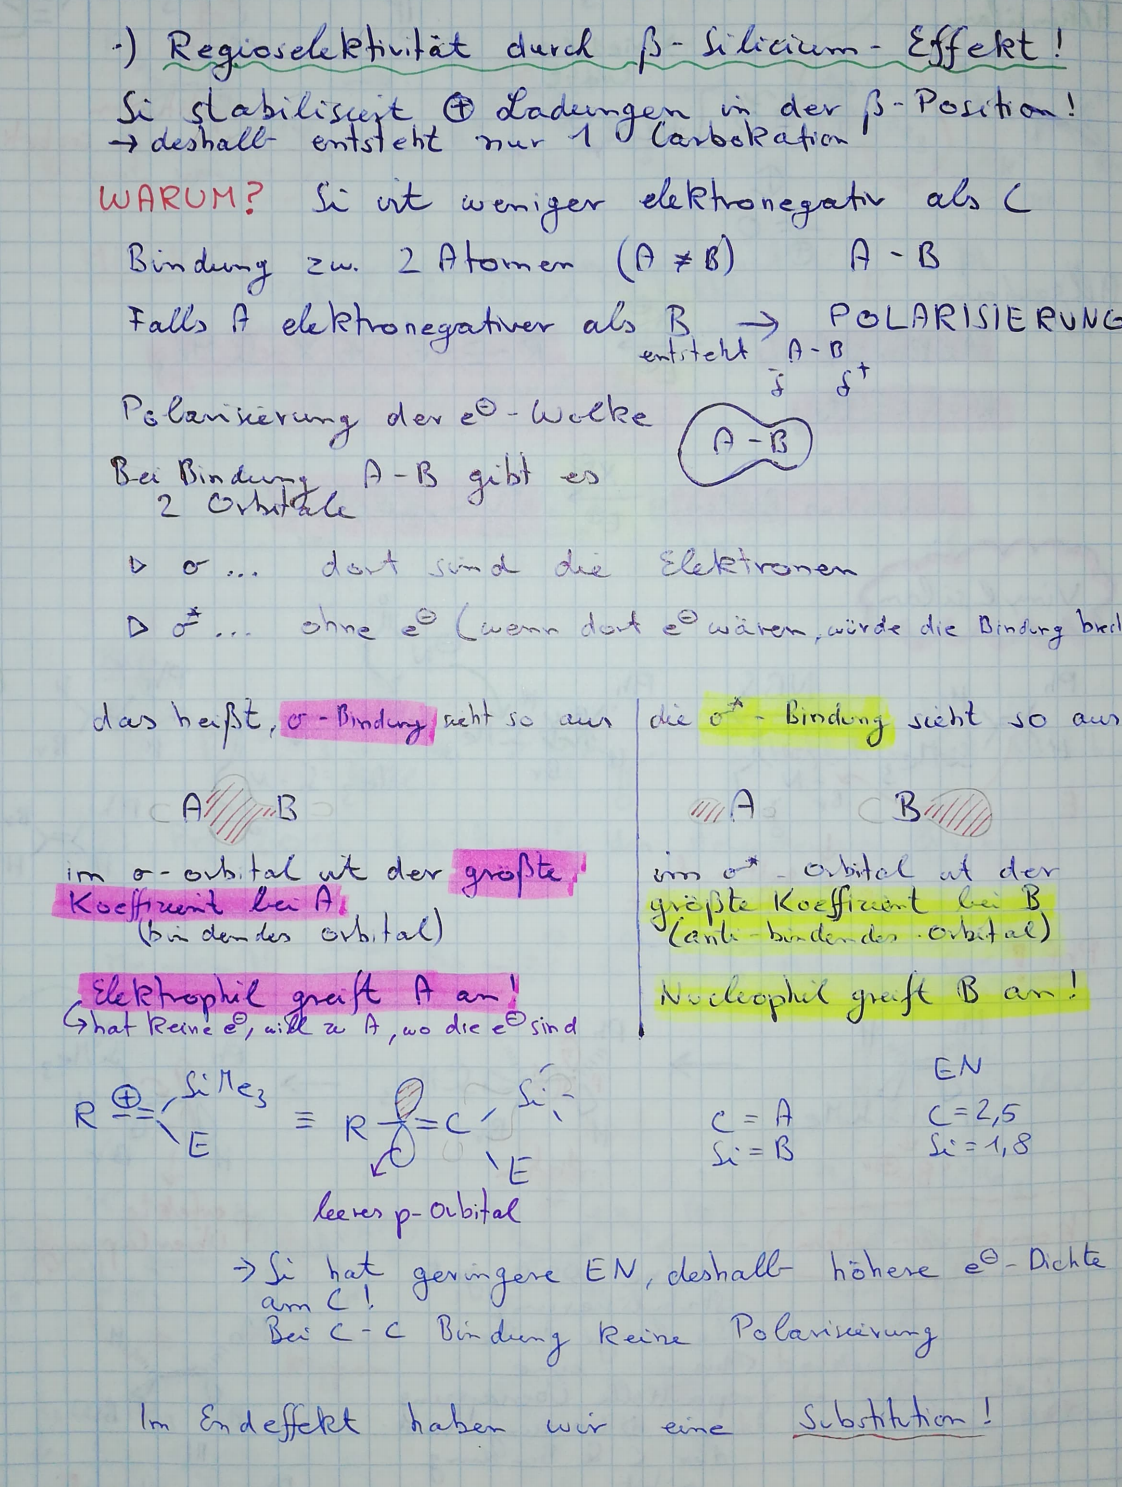 ·) Regioselektivität durch β-Silicium-Effekt!
Si stabilisiert ⊕ Ladungen in der β-Position!
→ deshalb entsteht nur 1 Carbokation
WARUM? Si ist weniger elektronegativ als C
Bindung zw. 2 Atomen (A ≠ B) A - B
Falls A elektronegativer als B → POLARISIERUNG
entsteht A - B
δ⁻ δ⁺
Polarisierung der e⊖-Wolke A - B
Bei Bindung A-B gibt es
2 Orbitale
▷ σ ... dort sind die Elektronen
▷ σ* ... ohne e⊖ (wenn dort e⊖ wären, würde die Bindung brec
das heißt, σ-Bindung sieht so aus
A B
im σ-orbital ist der größte
Koeffizient bei A
(bindendes Orbital)
Elektrophil greift A an!
↳ hat keine e⊖, will zu A, wo die e⊖ sind
die σ*-Bindung sieht so aus
A B
im σ*-Orbital ist der
größte Koeffizient bei B
(anti-bindendes Orbital)
Nucleophil greift B an!
R ⊕ SiMe₃ E ≡ R = C Si E
leeres p-Orbital
C = A
Si = B
EN
C = 2,5
Si = 1,8
→ Si hat geringere EN, deshalb höhere e⊖-Dichte
am C!
Bei C-C Bindung keine Polarisierung
Im Endeffekt haben wir eine Substitution!